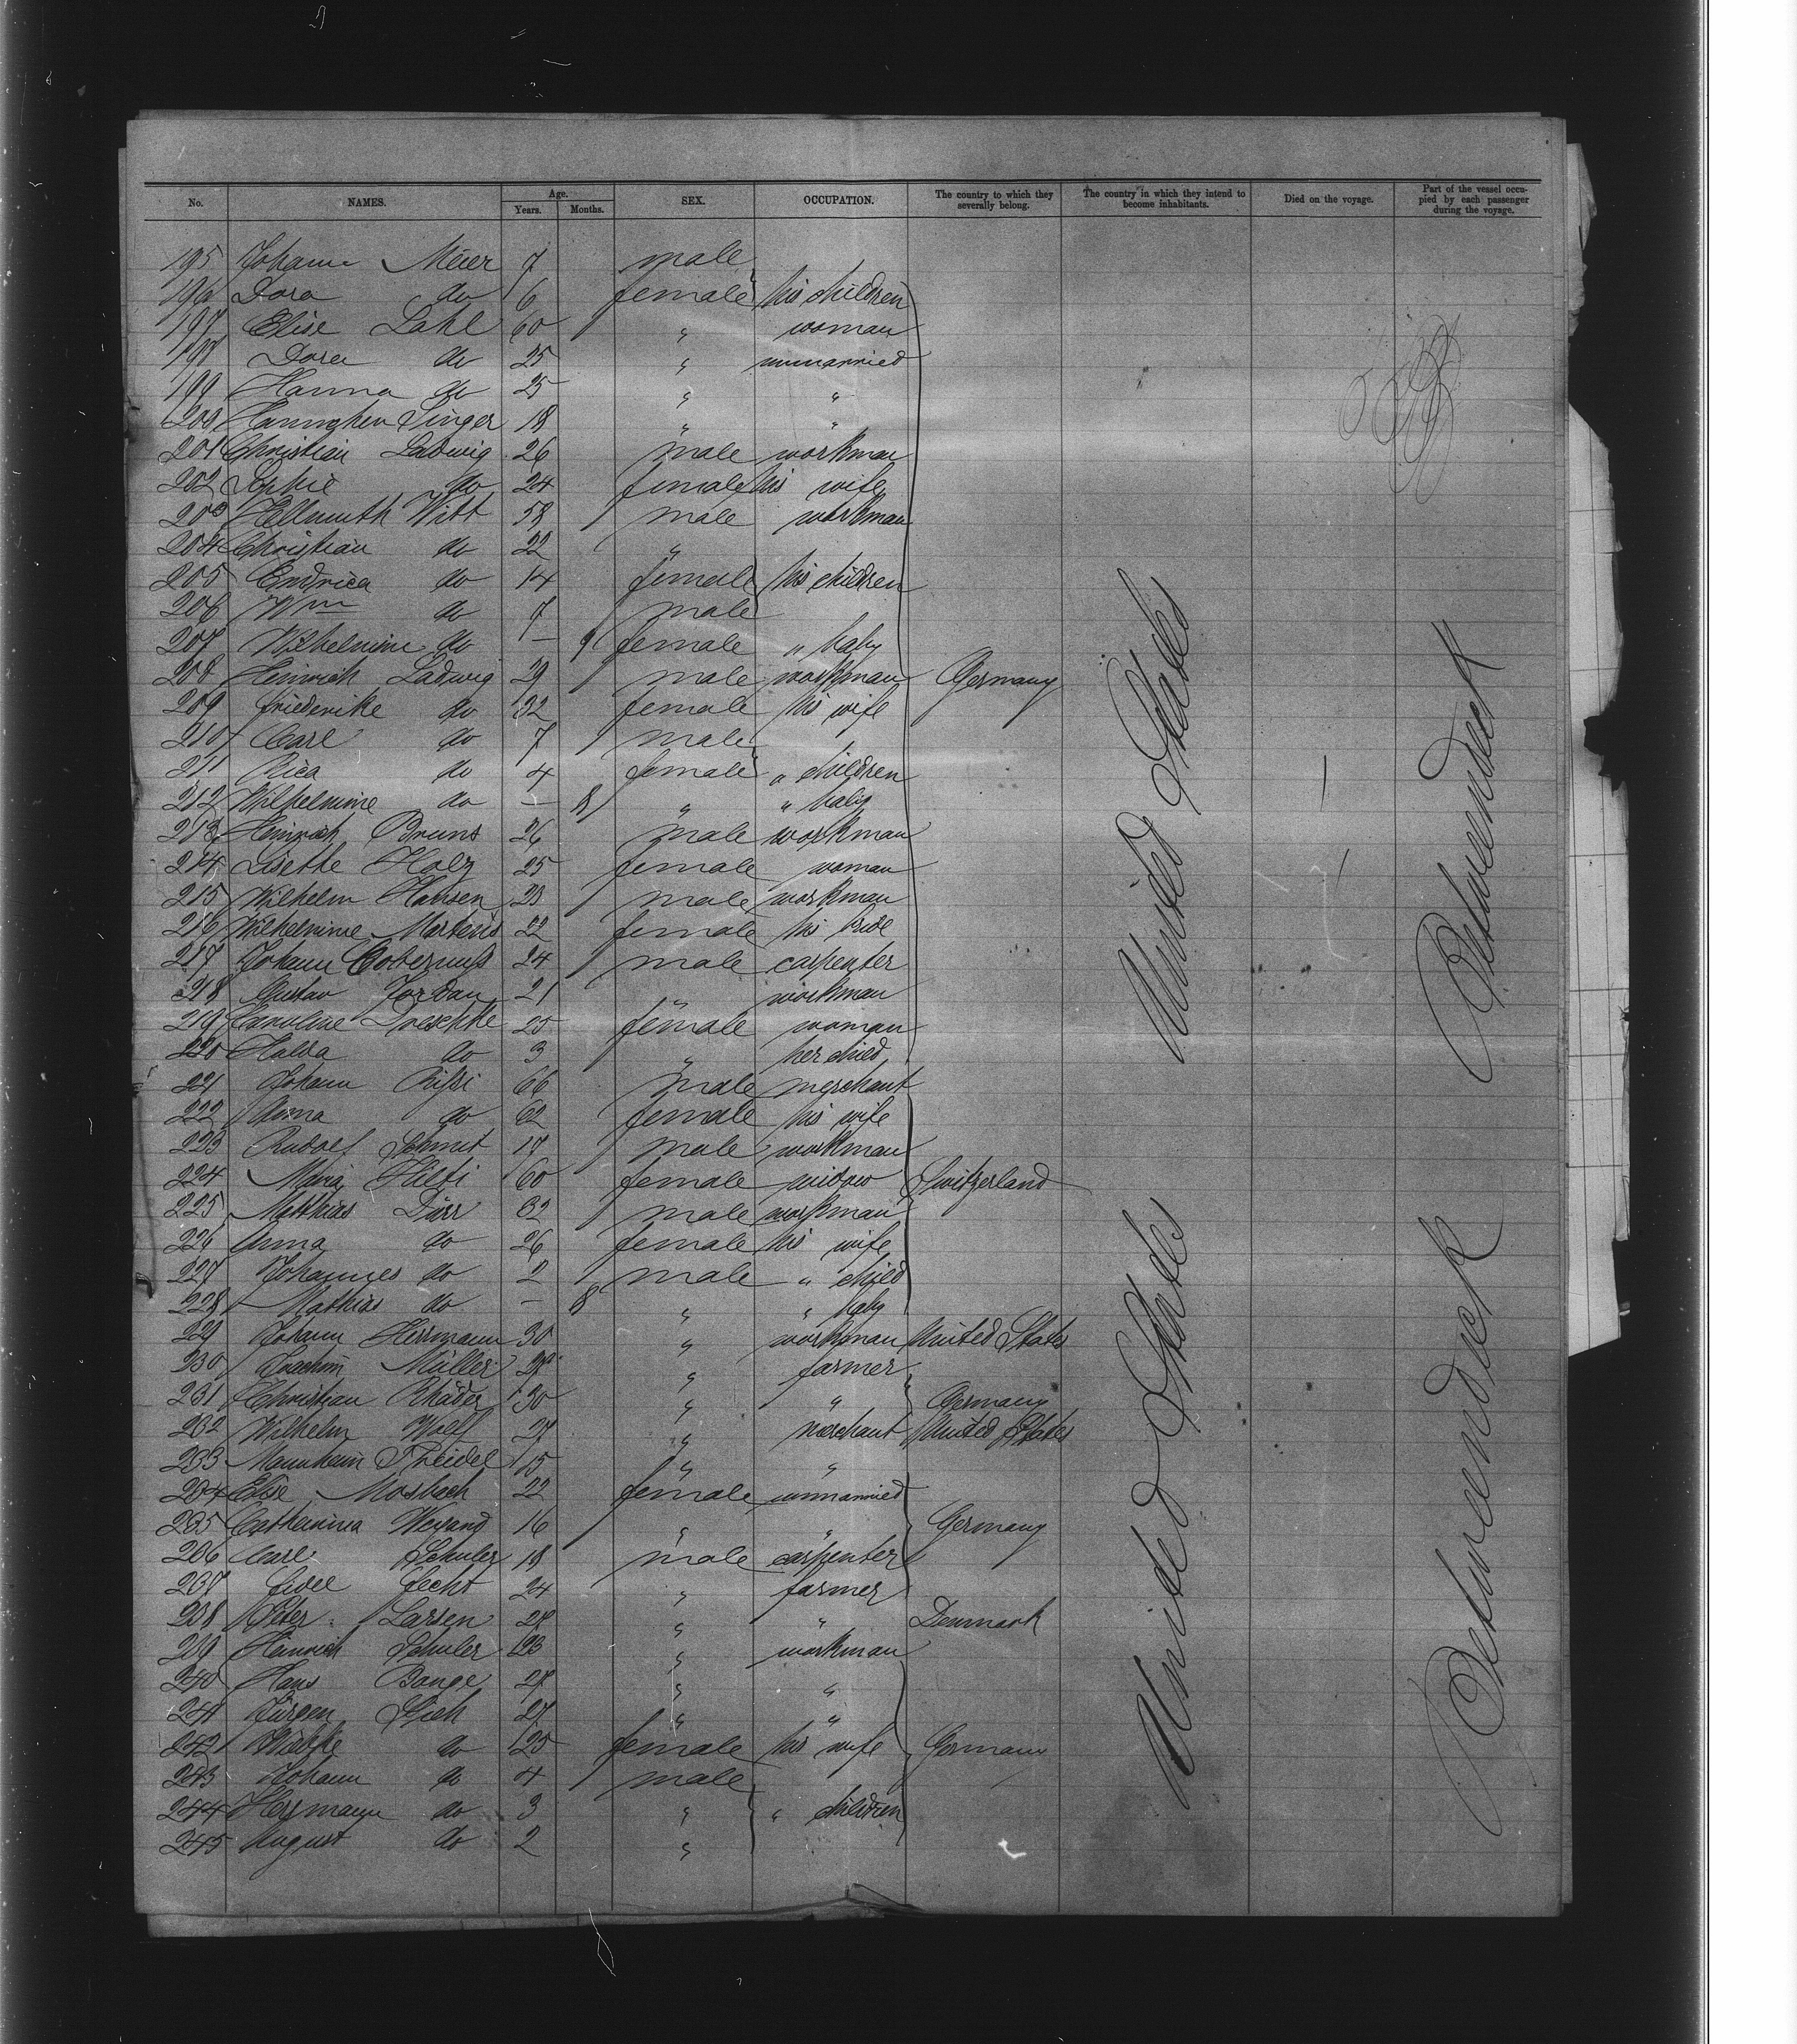 No. NAMES. Age. Years. Months. SEX. OCCUPATION. The country to which they severally belong. The country in which they intend to become inhabitants. Died on the voyage. Part of the vessel occupied by each passenger during the voyage.
195 Johann Meier 7 male
196 Dora do 6 female his children
197 Elise Lahl 60 " woman
198 Dora do 25 " unmarried
199 Hanna do 25 " "
200 Singer 18 " "
201 Christian Ladwig 26 male workman
202 Sophie do 24 female his wife
203 Hellmuth Witt 58 male workman
204 Christian do 22 "
205 Endrica do 14 female his children
206 Wm do 7 male
207 Wilhelmine do — 9 female " baby
208 Heinrich Ladwig 29 male workman Germany
209 Friederike do 32 female his wife
210 Carl do 7 male
211 Rica do 4 female " children
212 Wilhelmine do — 8 " " baby
213 Heinrich Bruns 26 male workman
214 Lisette Holz 25 female woman
215 Wilhelm Hansen 23 male workman
216 Wilhelmine Martens 22 female his bride
217 Johann 24 male carpenter
218 Gustav Jordan 21 " workman
219 Caroline Dreschke 25 female woman
220 Hulda do 3 " her child
221 Johann 66 male merchant
222 Anna do 62 female his wife
223 Rudolf Schmit 17 male workman
224 Maria Hilti 60 female widow Switzerland
225 Matthias Dürr 32 male workman
226 Anna do 26 female his wife
227 Johannes do 2 male " child
228 Mathias do — 8 " " baby
229 Johann Herrmann 30 " workman United States
230 Joachim Müller " farmer
231 Christian Rhäder 30 " " Germany
232 Wilhelm Wolf 27 " merchant United States
233 Mannheim 15 " "
234 Elise Mosbach 22 female unmarried
235 Catharina Weyand 16 " " Germany
236 Carl Schuler 18 male carpenter
237 Fidel Fecht 24 " farmer
238 Peter Larsen " " Denmark
239 Heinrich Schuler 23 " workman
240 Hans Bange " "
241 Jürgen 27 " "
242 Wiebke do 25 female his wife Germany
243 Johann do 4 male
244 Herrmann do 3 " " children
245 August do 2 "
United States
United States
Betweendeck
Betweendeck